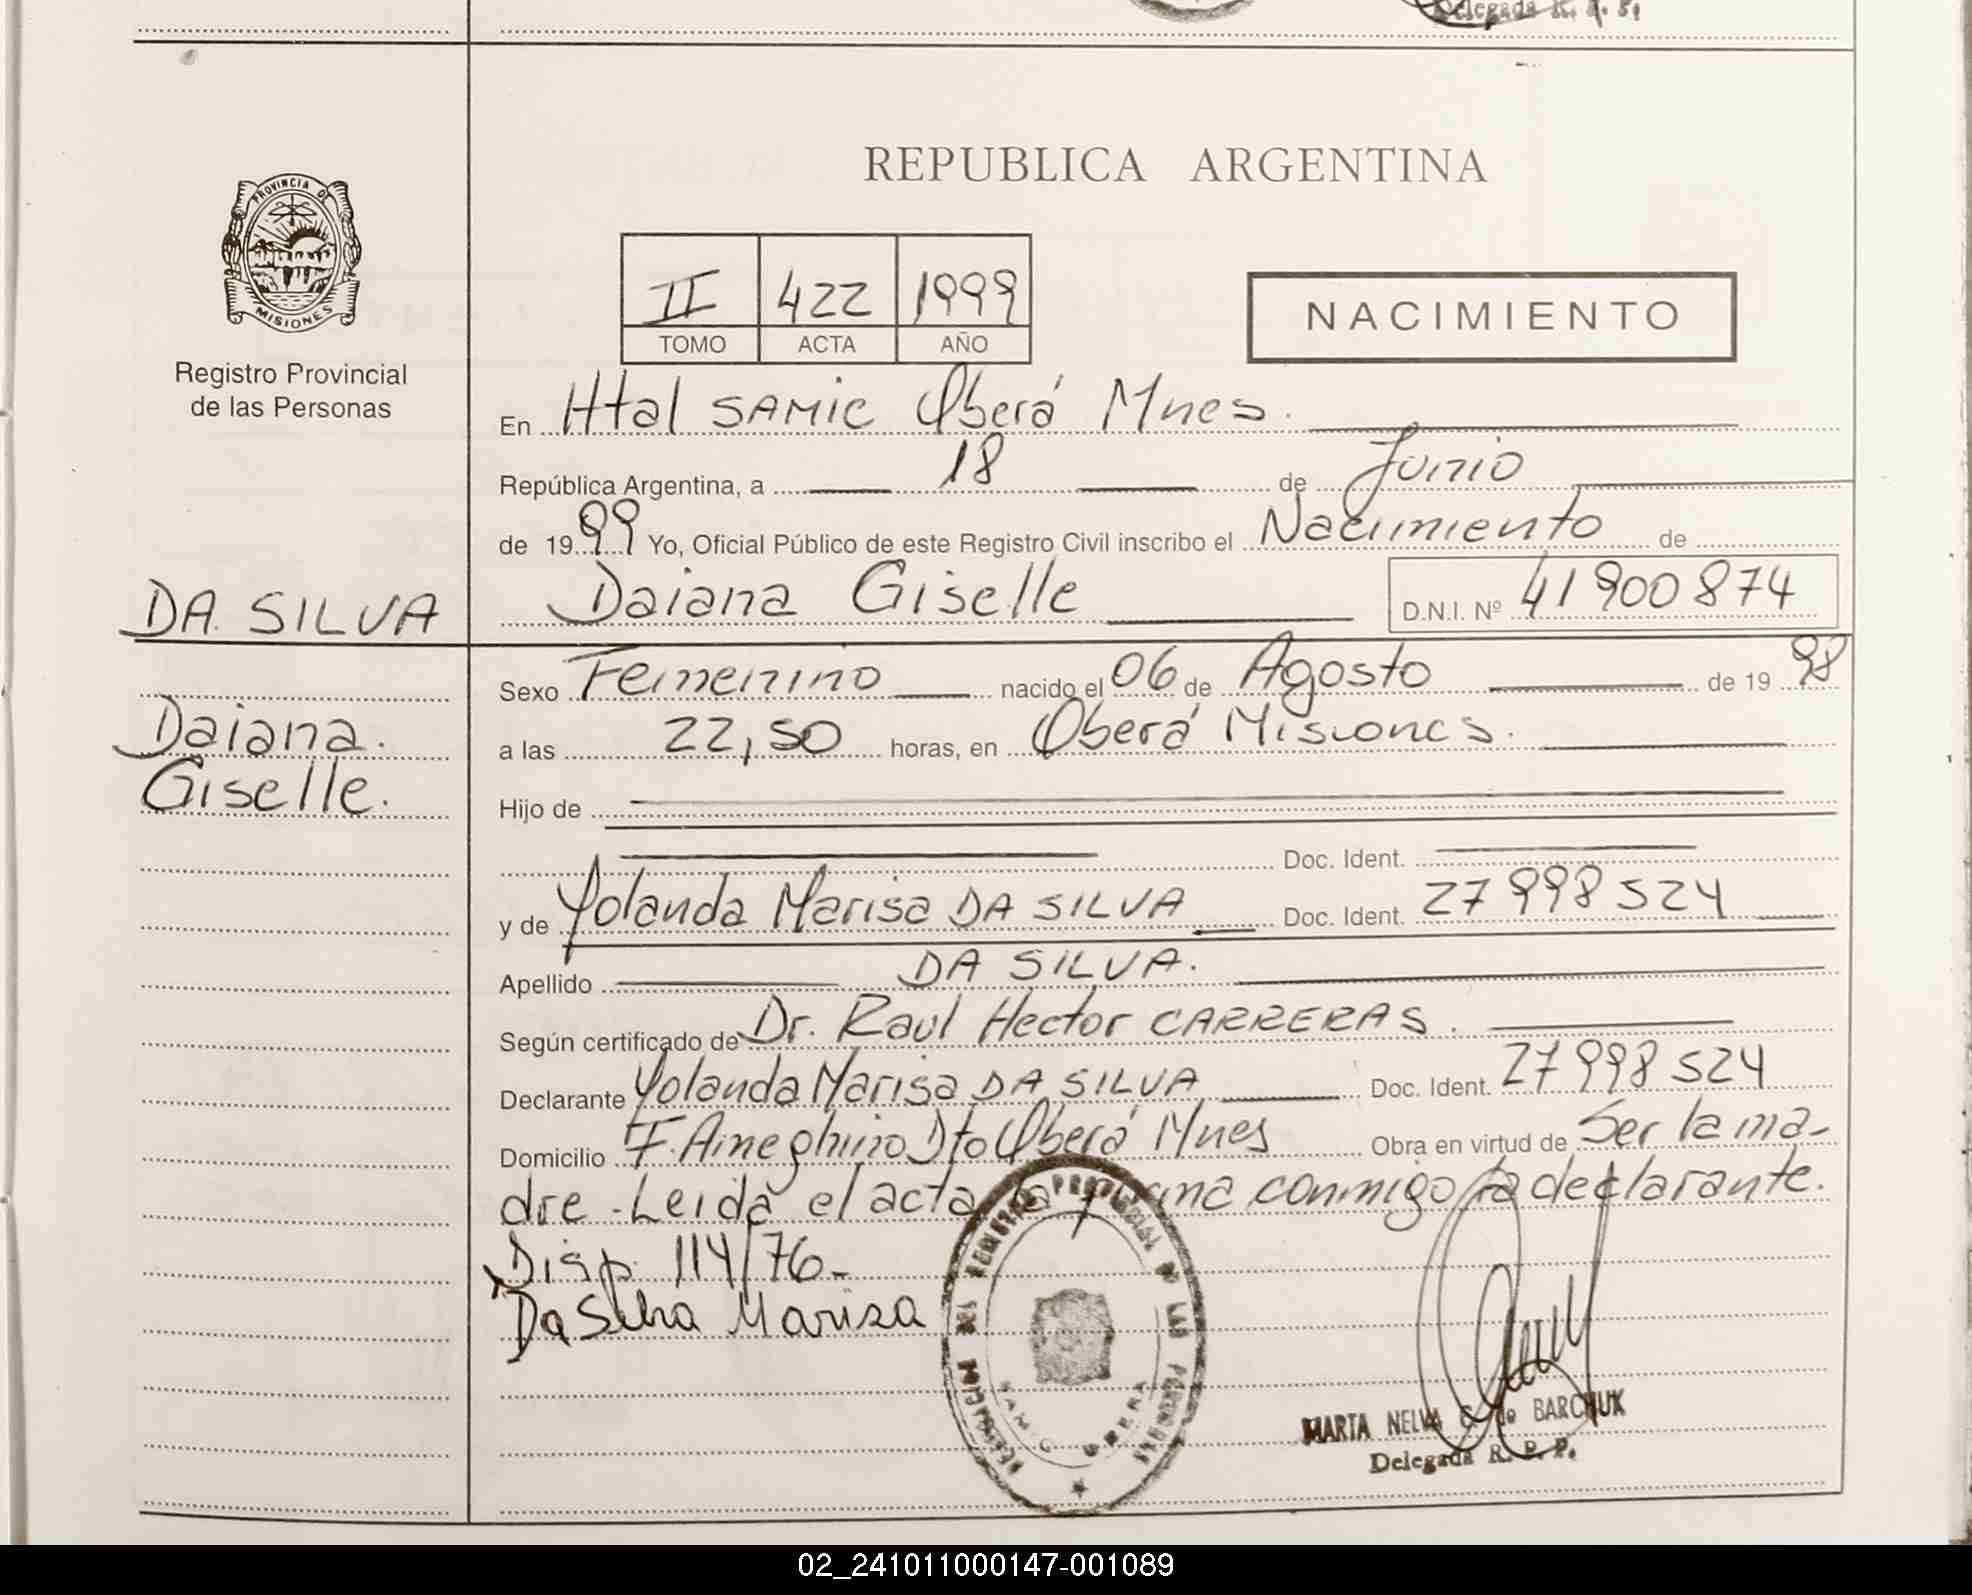 Delegada R. P. P.
REPUBLICA ARGENTINA
PROVINCIA DE
MISIONES
Registro Provincial
de las Personas
II 422 1999
TOMO ACTA AÑO
NACIMIENTO
En Htal SAMIC Oberá Mnes.
República Argentina, a 18 de Junio
de 1999 Yo, Oficial Público de este Registro Civil inscribo el Nacimiento de
DA SILVA Daiana Giselle D.N.I. Nº 41900874
Sexo Femenino nacido el 06 de Agosto de 1998
Daiana. a las 22,50 horas, en Oberá Misiones.
Giselle. Hijo de
Doc. Ident.
y de Yolanda Marisa DA SILVA Doc. Ident. 27998524
Apellido DA SILVA.
Según certificado de Dr. Raul Hector CARRERAS.
Declarante Yolanda Marisa DA SILVA Doc. Ident. 27998524
Domicilio F. Ameghino Dto Oberá Mnes Obra en virtud de Ser la ma-
dre. Leida el acta la firma conmigo la declarante.
Disp. 114/76-
Da Silva Marisa
DELEGACION DEL REGISTRO PROVINCIAL DE LAS PERSONAS
MARTA NELVA de BARCHUK
Delegada R. P. P.
02_241011000147-001089